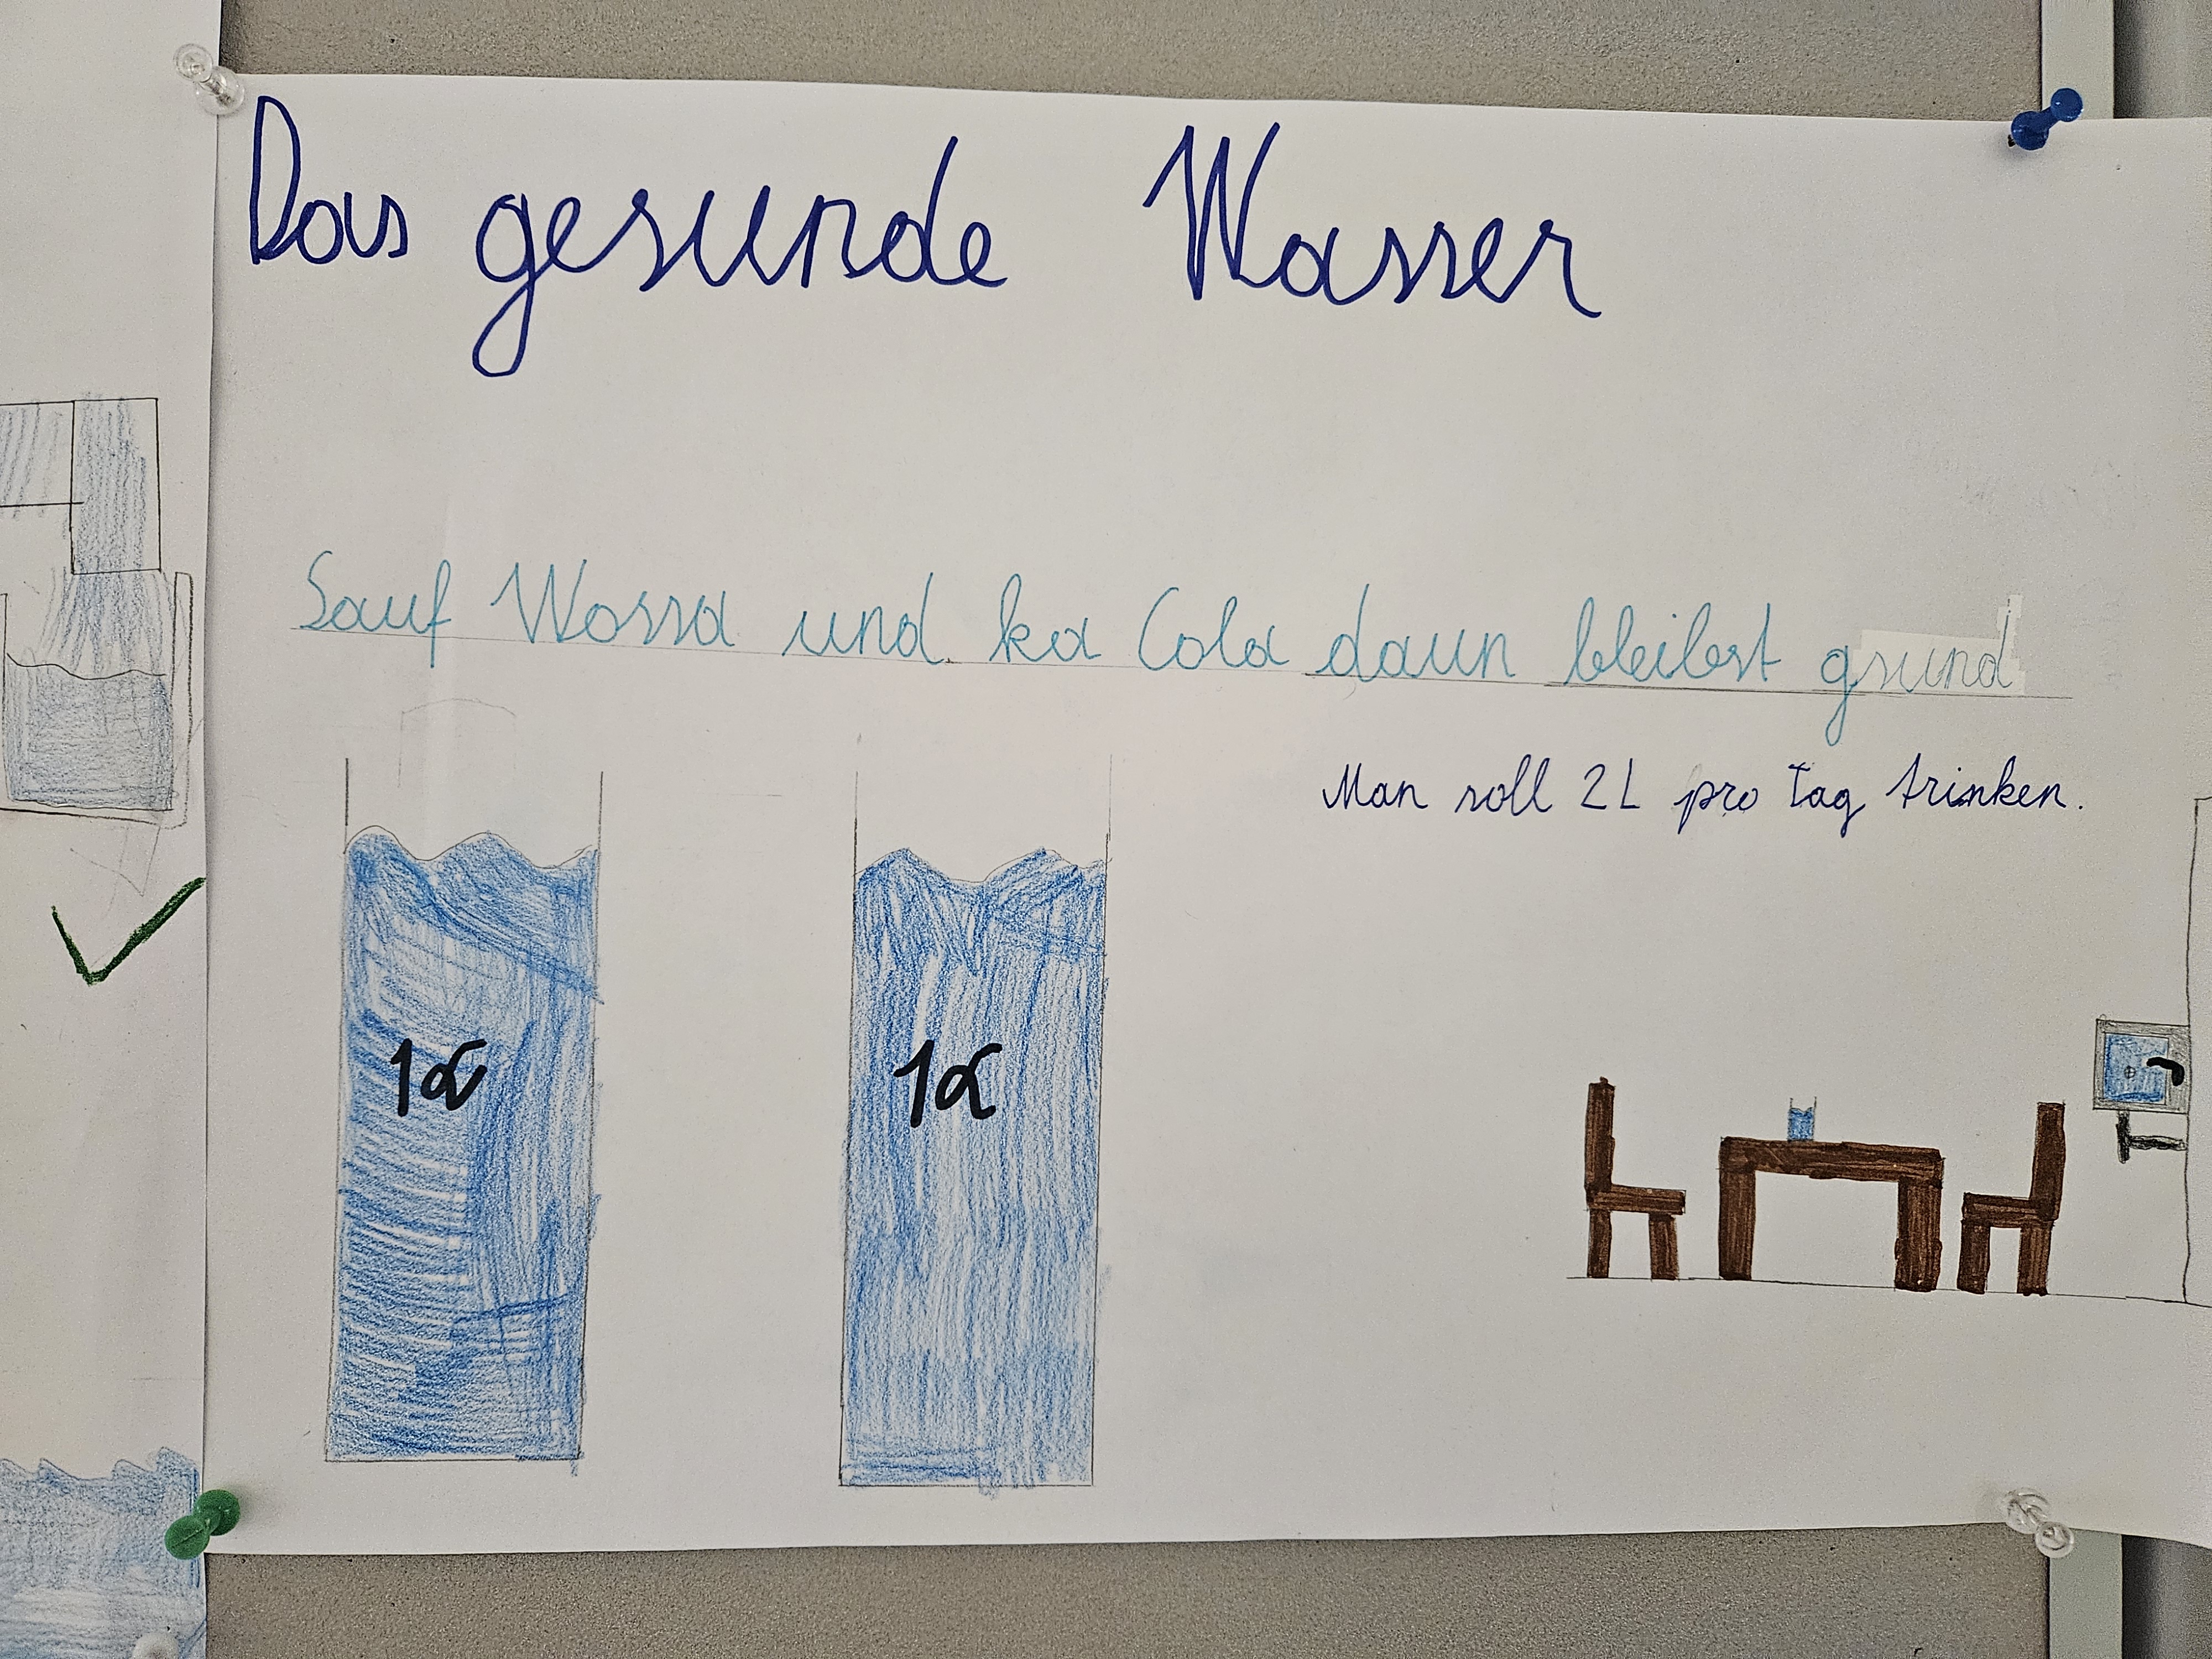 Das gesunde Wasser
Sauf Wossa und ka Cola daun bleibst gsund
Man soll 2L pro Tag trinken.
1l 1l